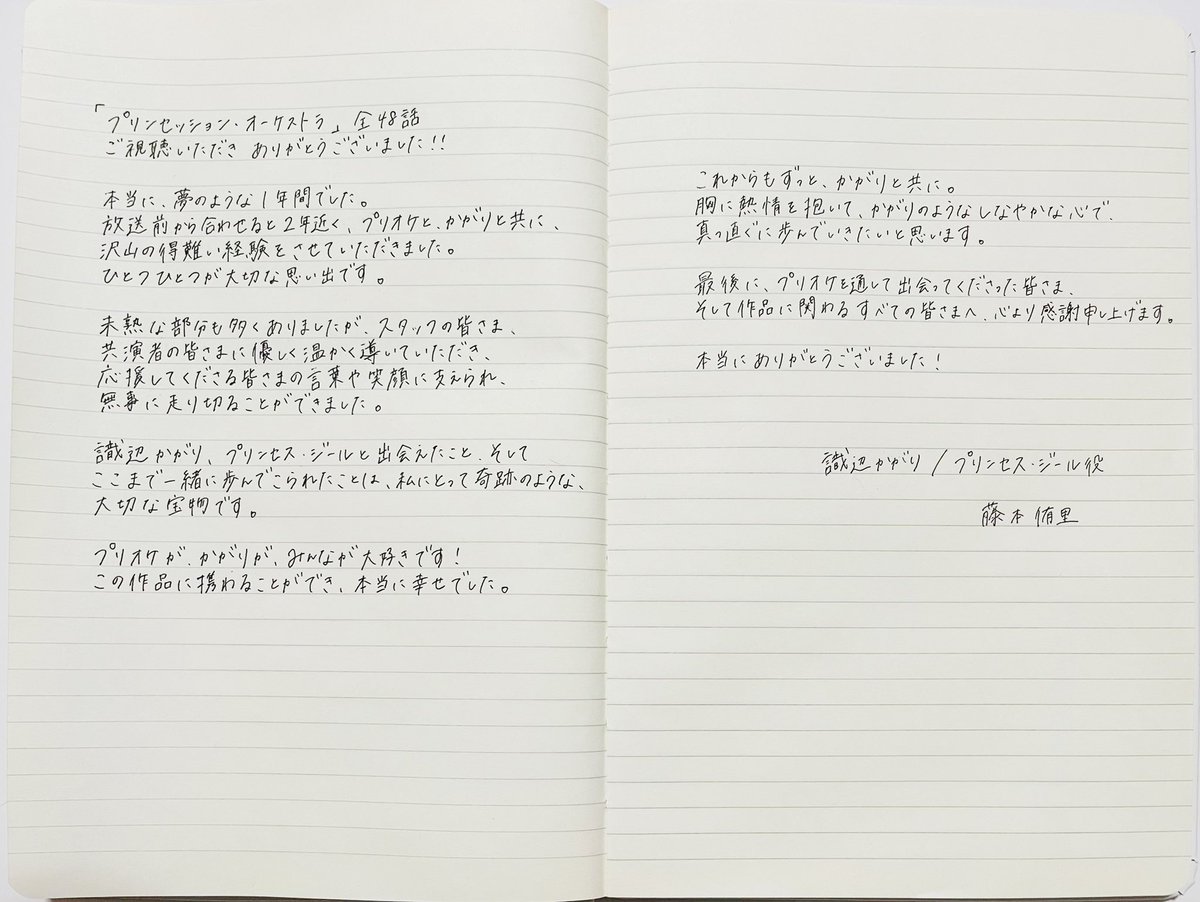 「プリンセッション・オーケストラ」全48話
ご視聴いただき ありがとうございました!!
本当に、夢のような1年間でした。
放送前から合わせると2年近く、プリオケと、かがりと共に、
沢山の得難い経験をさせていただきました。
ひとつひとつが大切な思い出です。
未熟な部分も多くありましたが、スタッフの皆さま、
共演者の皆さまに優しく温かく導いていただき、
応援してくださる皆さまの言葉や笑顔に支えられ、
無事に走り切ることができました。
識辺かがり、プリンセス・ジールと出会えたこと、そして
ここまで一緒に歩んでこられたことは、私にとって奇跡のような、
大切な宝物です。
プリオケが、かがりが、みんなが大好きです!
この作品に携わることができ、本当に幸せでした。
これからもずっと、かがりと共に。
胸に熱情を抱いて、かがりのようなしなやかな心で、
真っ直ぐに歩んでいきたいと思います。
最後に、プリオケを通して出会ってくださった皆さま、
そして作品に関わるすべての皆さまへ、心より感謝申し上げます。
本当にありがとうございました!
識辺かがり/プリンセス・ジール役
藤本侑里